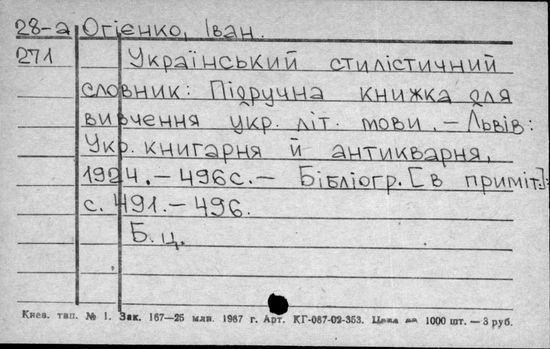 28-а Огієнко, Іван.
271 Український стилістичний
словник: Підручна книжка для
вивчення укр. літ. мови. – Львів:
Укр. книгарня й антикварня,
1924. – 496 с. – Бібліогр. [в приміт.]:
с. 491. – 496.
Б. ц.
Киев. тип. № 1. Зак. 167—25 млн. 1967 г. Арт. КГ-087-02-353. Цена за 1000 шт. — 3 руб.